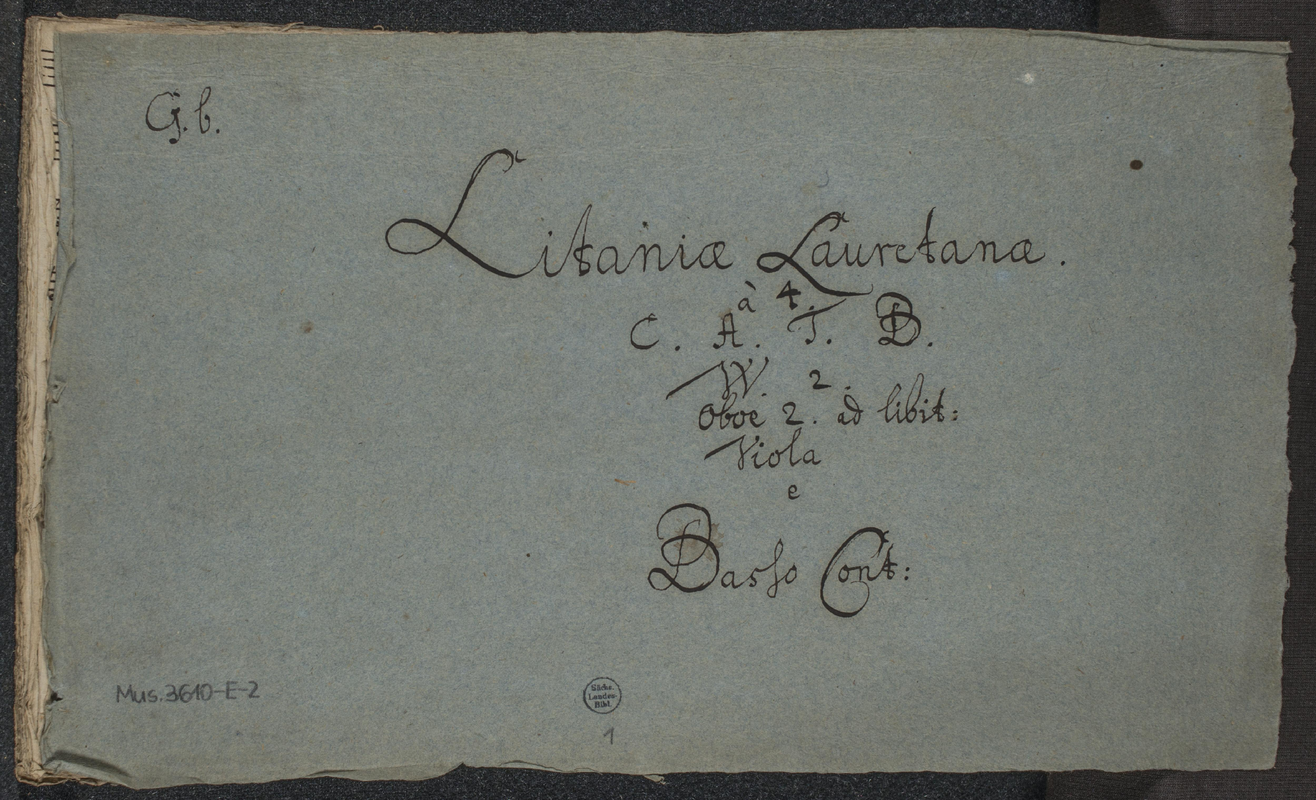 G.b.
Litaniæ Lauretanæ.
à 4.
C. A. T. B.
VV. 2.
Oboe 2. ad libit:
Viola
e
Basso Cont:
Mus.3610-E-2
Sächs.
Landes-
Bibl.
1